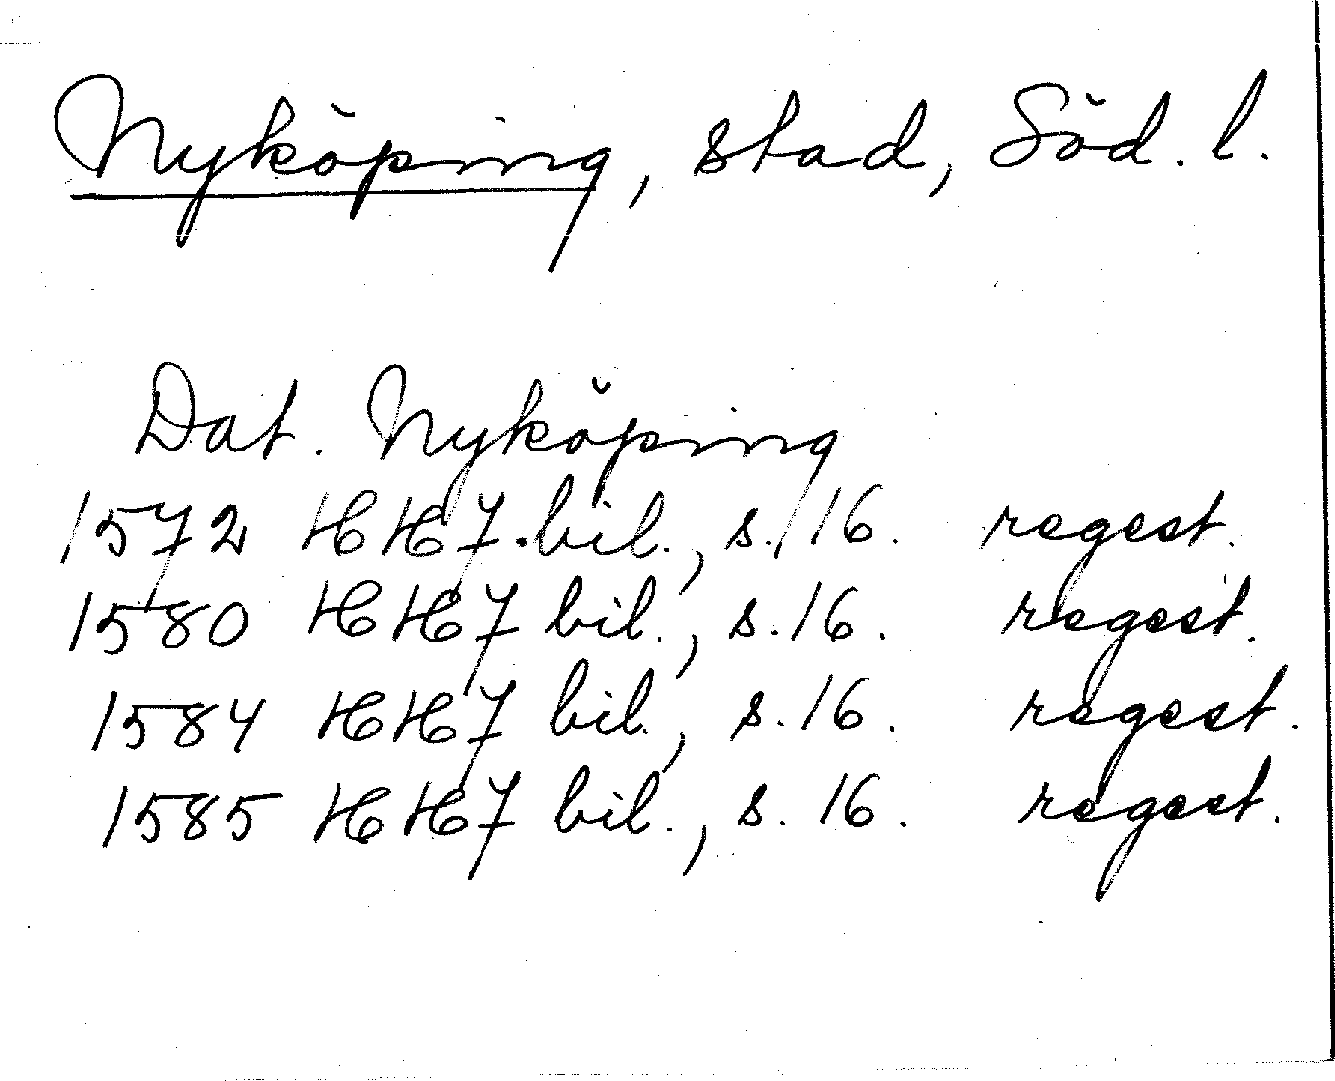 Nyköping, stad, Söd. l.
Dat. Nyköping
1572 HH7 bil., s. 16. regest.
1580 HH7 bil., s. 16. regest.
1584 HH7 bil., s. 16. regest.
1585 HH7 bil., s. 16. regest.